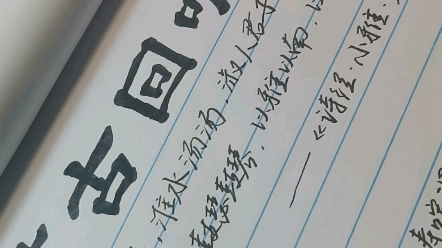 古回
，淮水汤汤，淑人君子
鼓瑟鼓琴，以雅以南，以
——《诗经·小雅·